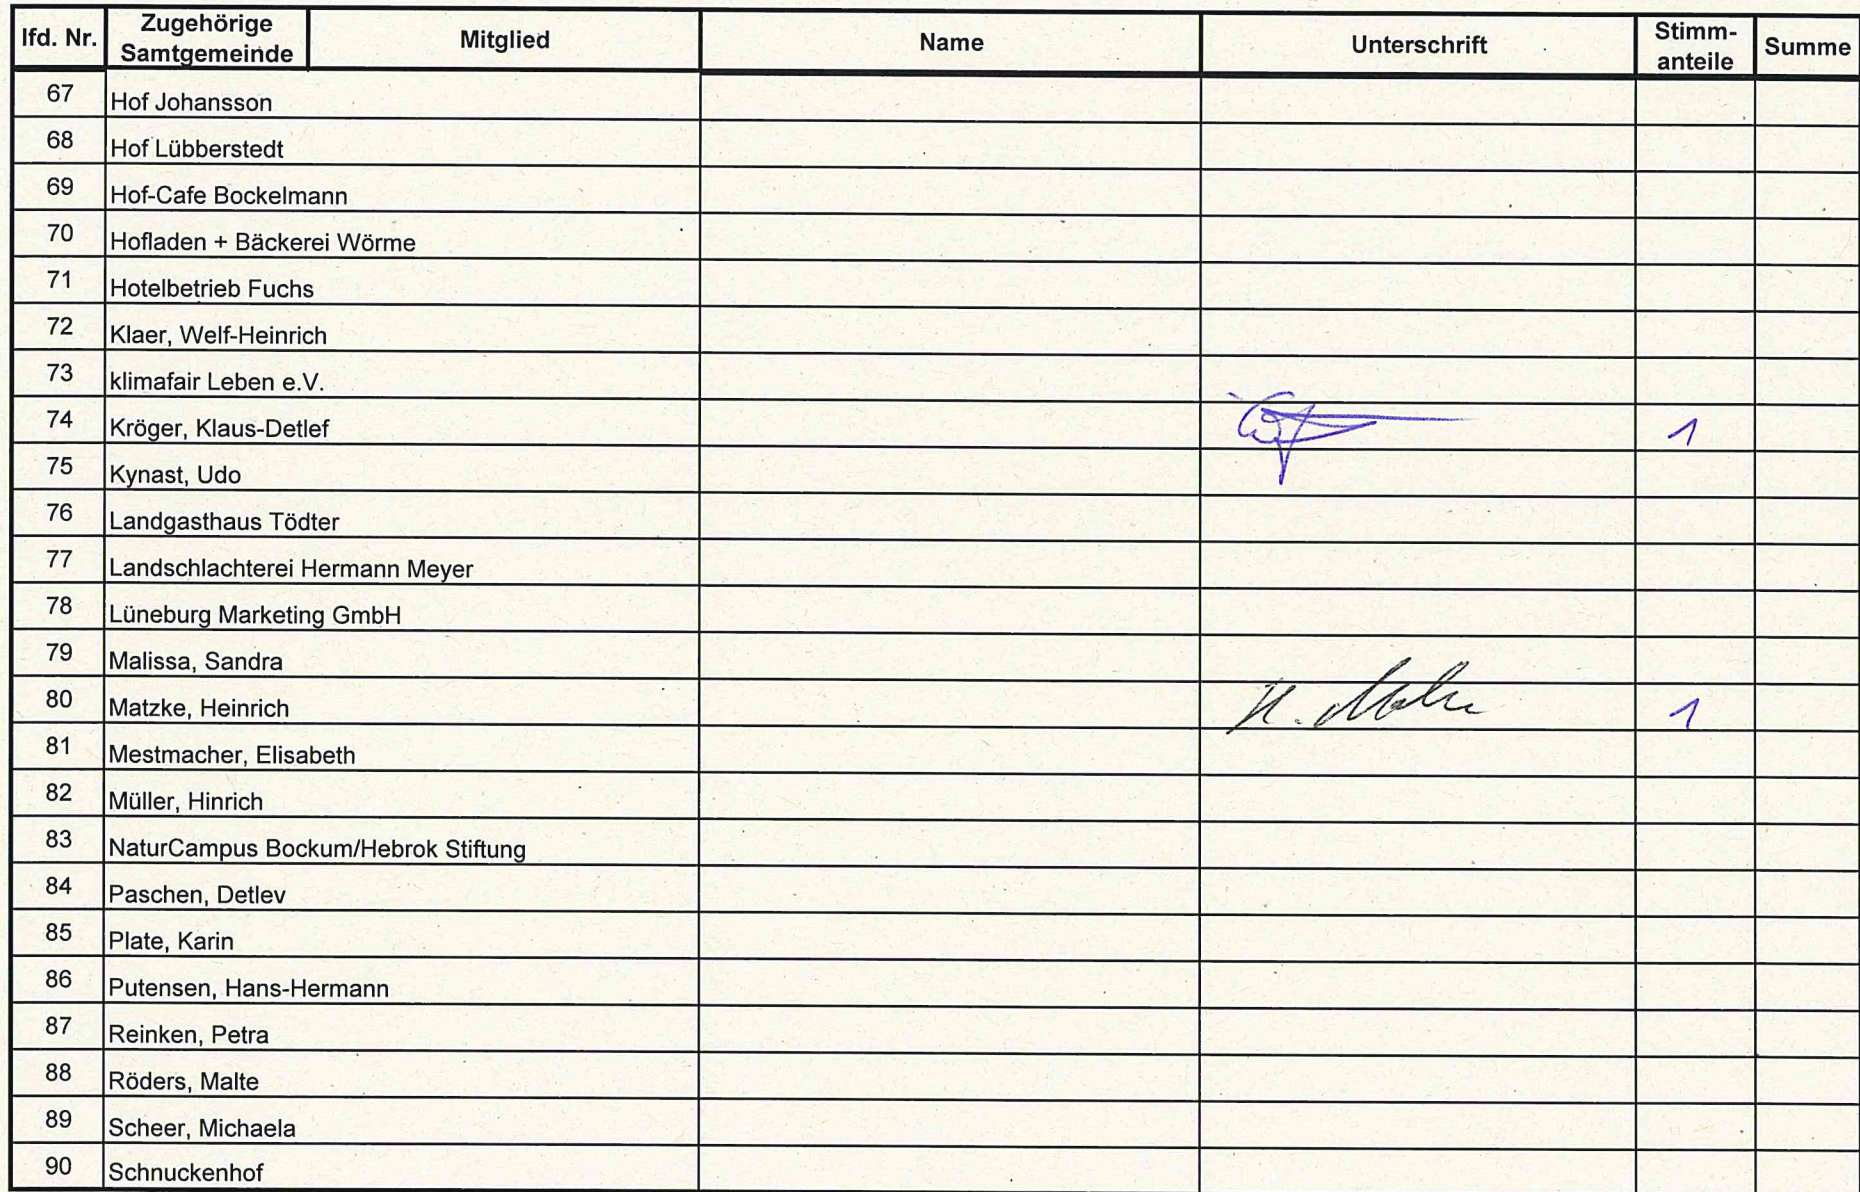 lfd. Nr. Zugehörige Samtgemeinde Mitglied Name Unterschrift Stimm-anteile Summe
67 Hof Johansson
68 Hof Lübberstedt
69 Hof-Cafe Bockelmann
70 Hofladen + Bäckerei Wörme
71 Hotelbetrieb Fuchs
72 Klaer, Welf-Heinrich
73 klimafair Leben e.V.
74 Kröger, Klaus-Detlef 1
75 Kynast, Udo
76 Landgasthaus Tödter
77 Landschlachterei Hermann Meyer
78 Lüneburg Marketing GmbH
79 Malissa, Sandra
80 Matzke, Heinrich H. 1
81 Mestmacher, Elisabeth
82 Müller, Hinrich
83 NaturCampus Bockum/Hebrok Stiftung
84 Paschen, Detlev
85 Plate, Karin
86 Putensen, Hans-Hermann
87 Reinken, Petra
88 Röders, Malte
89 Scheer, Michaela
90 Schnuckenhof